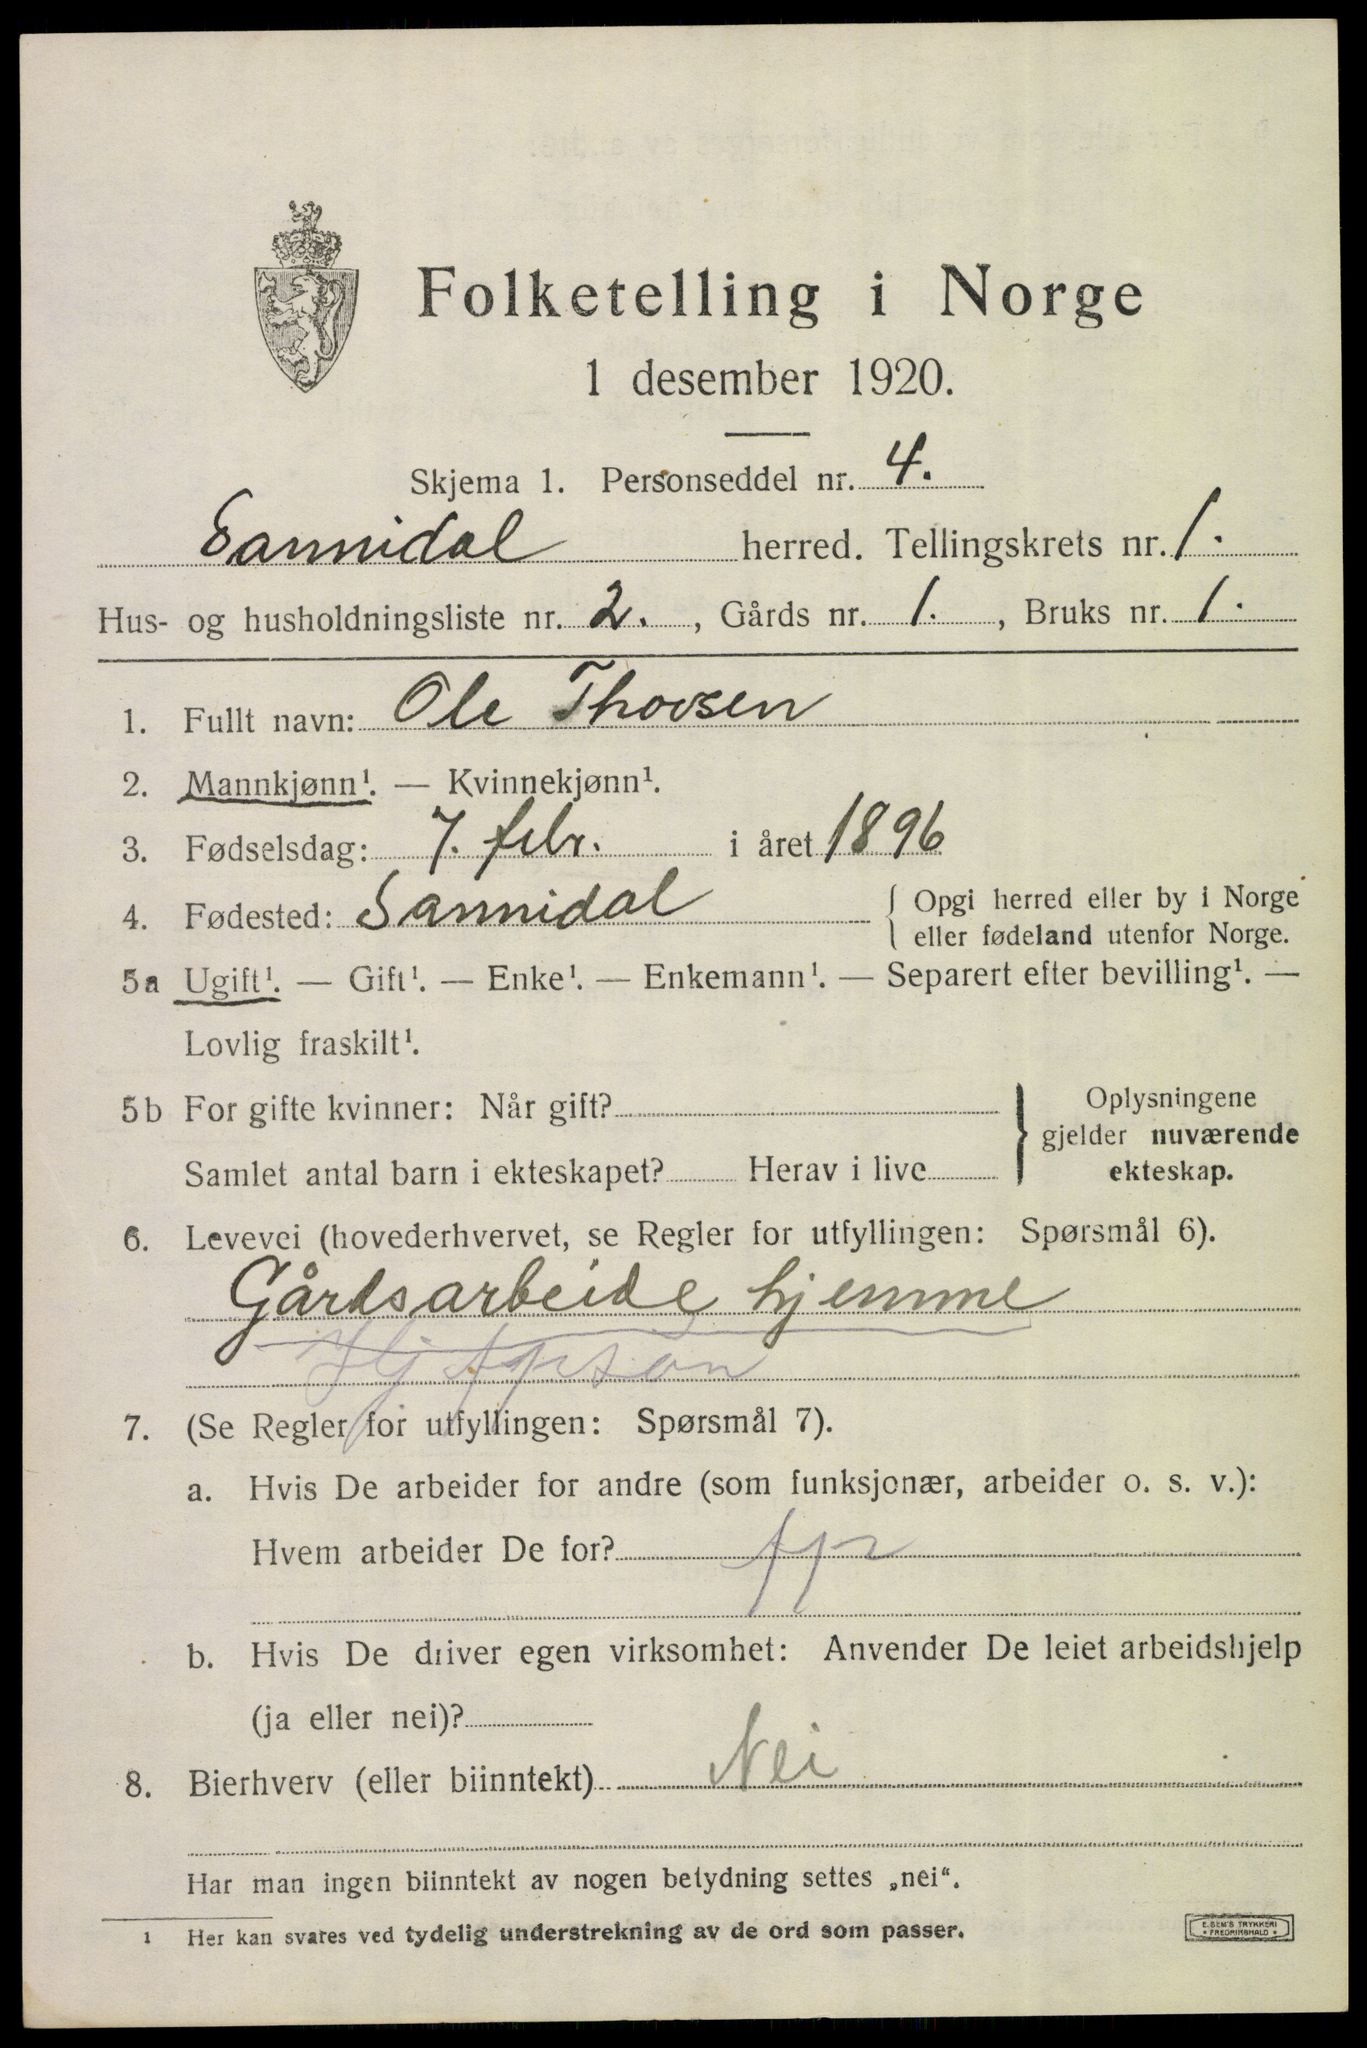 Folketelling i Norge
1 desember 1920.
Skjema 1. Personseddel nr. 4.
Sannidal herred. Tellingskrets nr. 1.
Hus- og husholdningsliste nr. 2. , Gårds nr. 1. , Bruks nr. 1.
1. Fullt navn: Ole Thorsen
2. Mannkjønn¹. — Kvinnekjønn¹.
3. Fødselsdag: 7. febr. i året 1896
4. Fødested: Sannidal { Opgi herred eller by i Norge
eller fødeland utenfor Norge.
5a Ugift¹. — Gift¹. — Enke¹. — Enkemann¹. — Separert efter bevilling¹. —
Lovlig fraskilt¹.
5b For gifte kvinner: Når gift?
Samlet antal barn i ekteskapet? Herav i live
} Oplysningene
gjelder nuværende
ekteskap.
6. Levevei (hovederhvervet, se Regler for utfyllingen: Spørsmål 6).
Gårdsarbeide hjemme
7. (Se Regler for utfyllingen: Spørsmål 7).
a. Hvis De arbeider for andre (som funksjonær, arbeider o. s. v.):
Hvem arbeider De for?
b. Hvis De driver egen virksomhet: Anvender De leiet arbeidshjelp
(ja eller nei)?
8. Bierhverv (eller biinntekt) Nei
Har man ingen biinntekt av nogen betydning settes „nei“.
1 Her kan svares ved tydelig understrekning av de ord som passer.
E. SEM'S TRYKKERI
FREDRIKSHALD